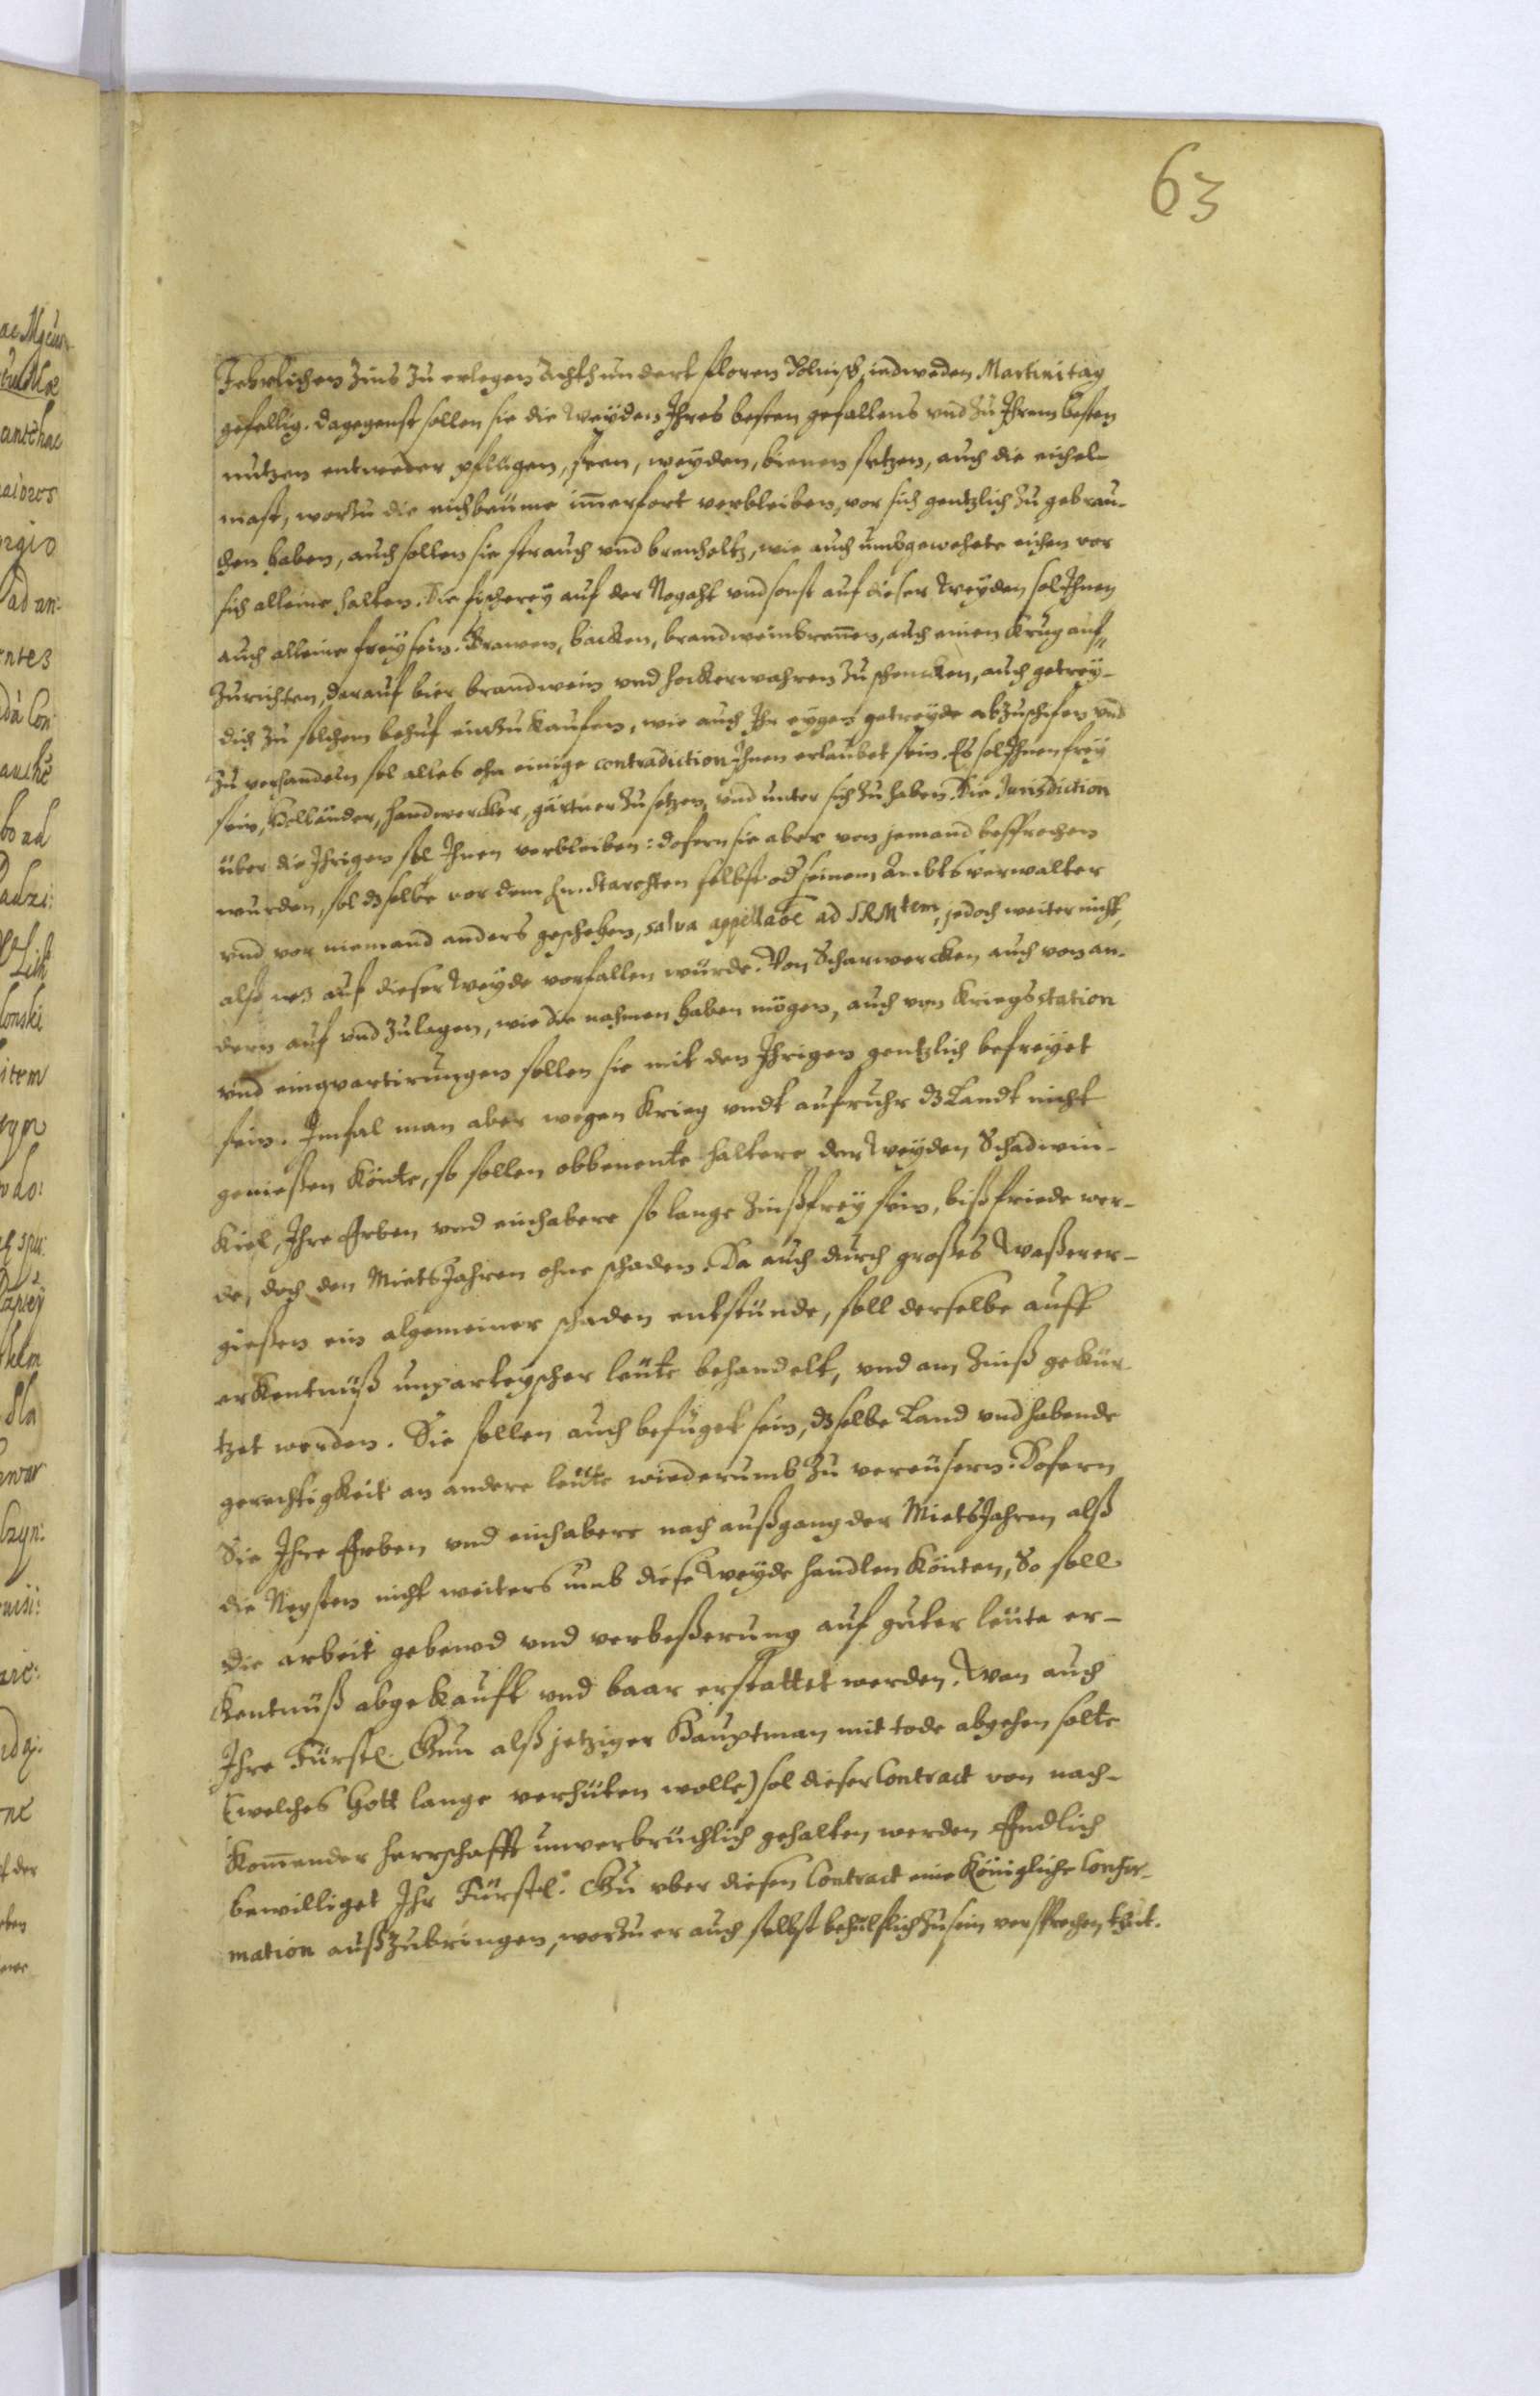 63
Jehrlichen Zins zu erlegen Achthundert floren Polnisch, iedweden Martini tag
gefellig. Dagegenst sollen sie die Weyden Ihres besten gefallens vnd zu Ihrem besten
nutzen entweder pflügen, seen, weyden, bienen setzen, auch die eichel-
mast, worzu die eichbeüme im̄erfort verbleiben, vor sich gentzlich zu gebrau-
chen haben, auch sollen sie strauch vnd brenholtz, wie auch umbgewehete eichen vor
sich alleine halten. Die fischerey auf der Nogaht vnd sonst auf dieser Weyden sol Ihnen
auch alleine frey sein. Brawen, backen, brandweinbren̄en, auch einen Krug auf-
zurichten, darauf bier brandwein vnd hockerwahren zu schencken, auch getrey-
dich zu solchem behuf einzukaufen, wie auch Ihr eygen getreyde abzuschifen vnd
zu verhandeln sol alles ohn einige contradiction Ihnen erlaubet sein. Es sol Ihnen frey
sein, Holländer, Handwercker, gärtner zu setzen, vnd unter sich zu haben. Die Jurisdiction
über die Ihrigen sol Ihnen verbleiben: dofern sie aber von jemand besprochen
wurden, sol dz selbe vor dem Hn. Starosten selbst od seinem Ambtsverwalter
vnd vor niemand anders geschehen, salva appellaõe ad SRMtem, jedoch weiter nicht,
alß wz auf dieser Weyde vorfallen würde. Von Scharwercken auch von an-
dern auf vnd zulagen, wie die nahmen haben mögen, auch von Kriegsstation
vnd einqvartirungen sollen sie mit den Ihrigen gentzlich befreyet
sein. Imfal man aber wegen Krieg vndt aufruhr dz Landt nicht
genießen könte, so sollen obbenente haltere der Weyden Schadwin-
kiel, Ihre Erben vnd einhabere so lange Zinßfrey sein, biß friede wer-
de, doch den Miets Jahren ohne schaden. Da auch durch großes Waßerer-
gießen ein algemeiner schaden entstünde, soll derselbe auff
erkentnüß unparteyscher leüte behandelt, vnd am Zinß gekür-
tzet werden. Sie sollen auch befüget sein, dz selbe Land vnd habende
gerechtigkeit an andere leüte wiederumb zu vereüsern. Dofern
Sie Ihre Erben vnd einhabere nach außgang der Miets Jahren alß
die Negsten nicht weiters umb diese Weyde handlen könten, So soll
die arbeit gebewd vnd verbeßerung auf guter leüte er-
kentnüß abgekauft vnd baar erstattet werden. Wan auch
Ihre Fürstl. Gnn alß jetziger Hauptman mit tode abgehen solte
(welches Gott lange verhüten wolle) sol dieser Contract von nach-
kom̄ender Herrschafft unverbrüchlich gehalten werden. Endlich
bewilliget Ihr Fürstl. Gn vber diesen Contract eine Königliche Confir-
mation außzubringen, worzu er auch selbst behülflich zu sein versprechen thut.